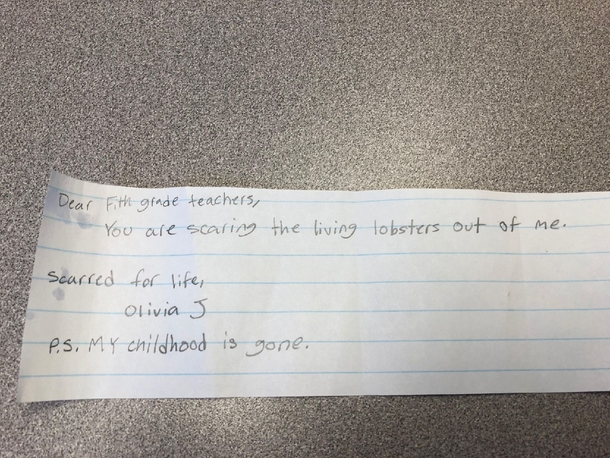 Dear Fith grade teachers,
You are scaring the living lobsters out of me.
Scarred for life,
Olivia J
P.S. MY childhood is gone.